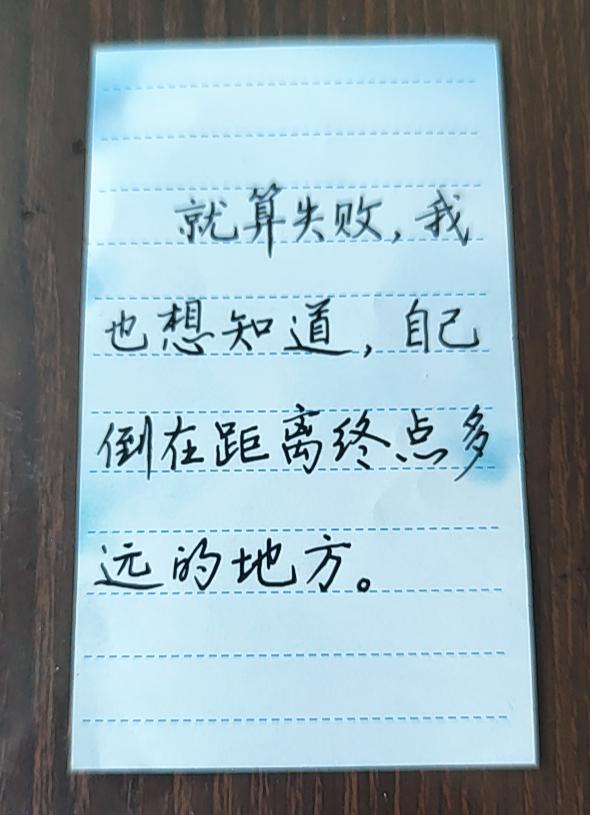 就算失败,我
也想知道,自己
倒在距离终点多
远的地方。